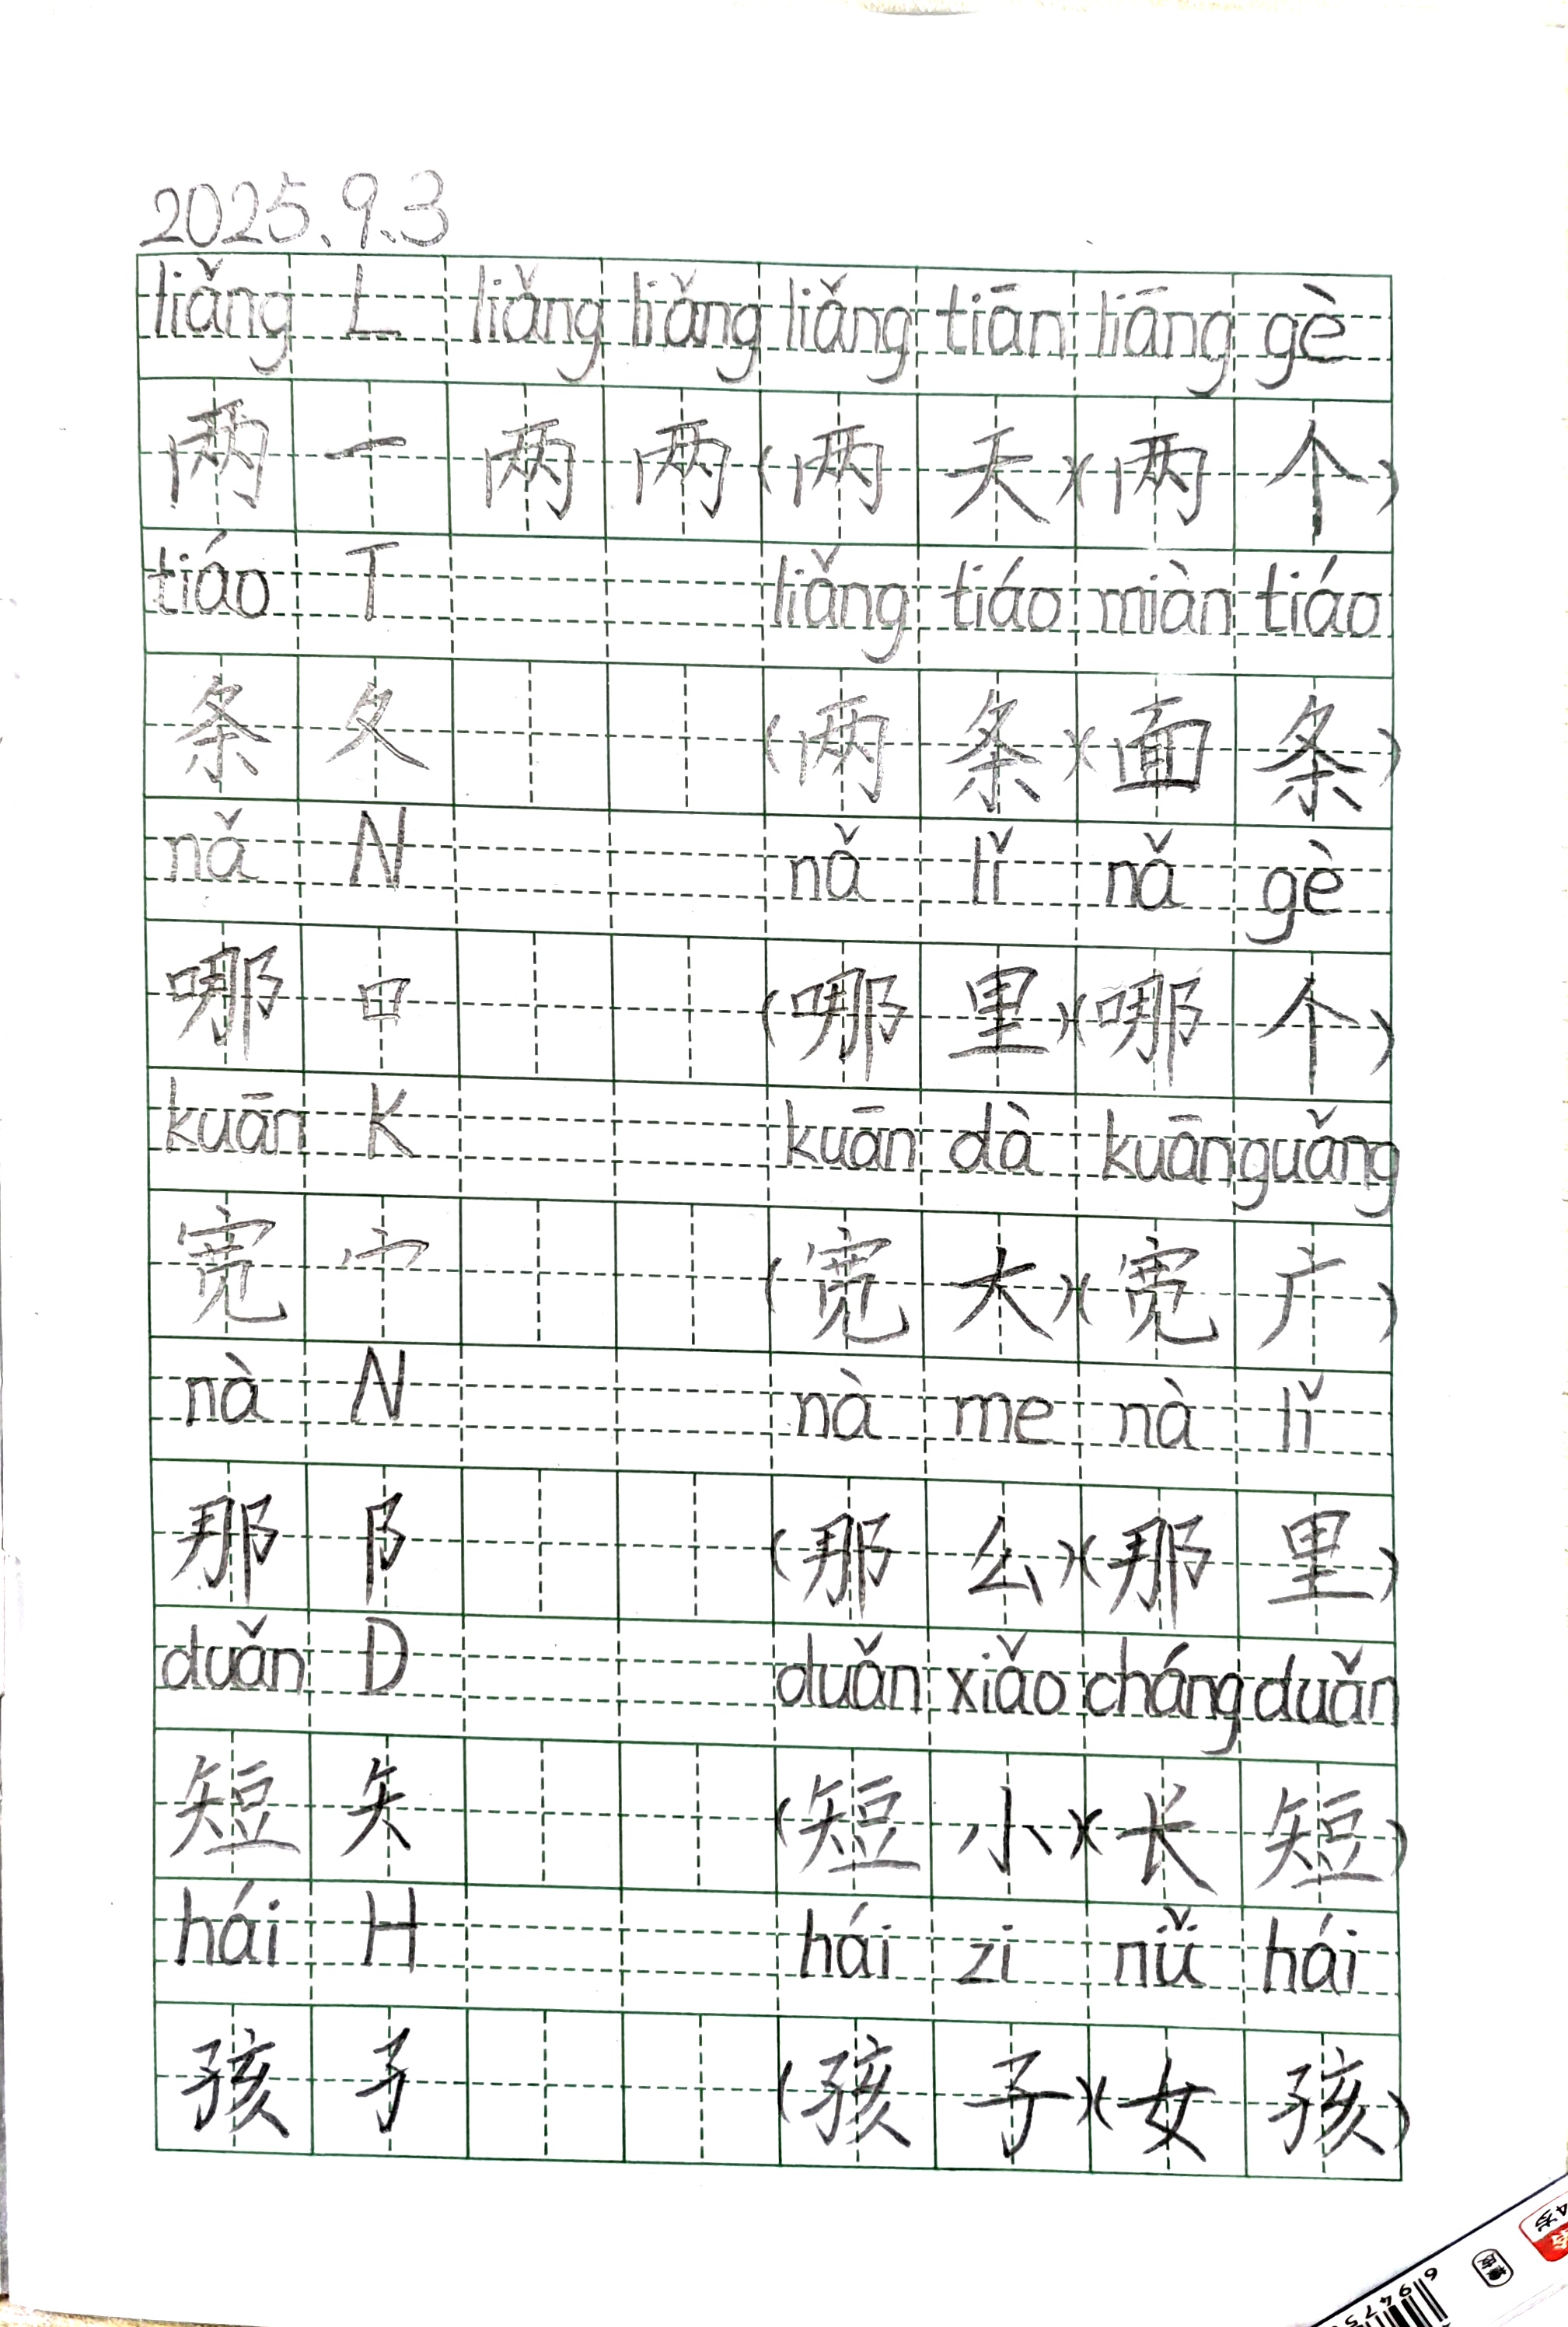 2025.9.3
liǎng L liǎng liǎng liǎng tiān liāng gè
两 一 两 两 (两 天)(两 个)
tiáo T liǎng tiáo miàn tiáo
条 夂 (两 条)(面 条)
nǎ N nǎ lǐ nǎ gè
哪 口 (哪 里)(哪 个)
kuān K kuān dà kuān guǎng
宽 宀 (宽 大)(宽 广)
nà N nà me nà lǐ
那 阝 (那 么)(那 里)
duǎn D duǎn xiǎo cháng duǎn
短 矢 (短 小)(长 短)
hái H hái zi nǚ hái
孩 子 (孩 子)(女 孩)
69473